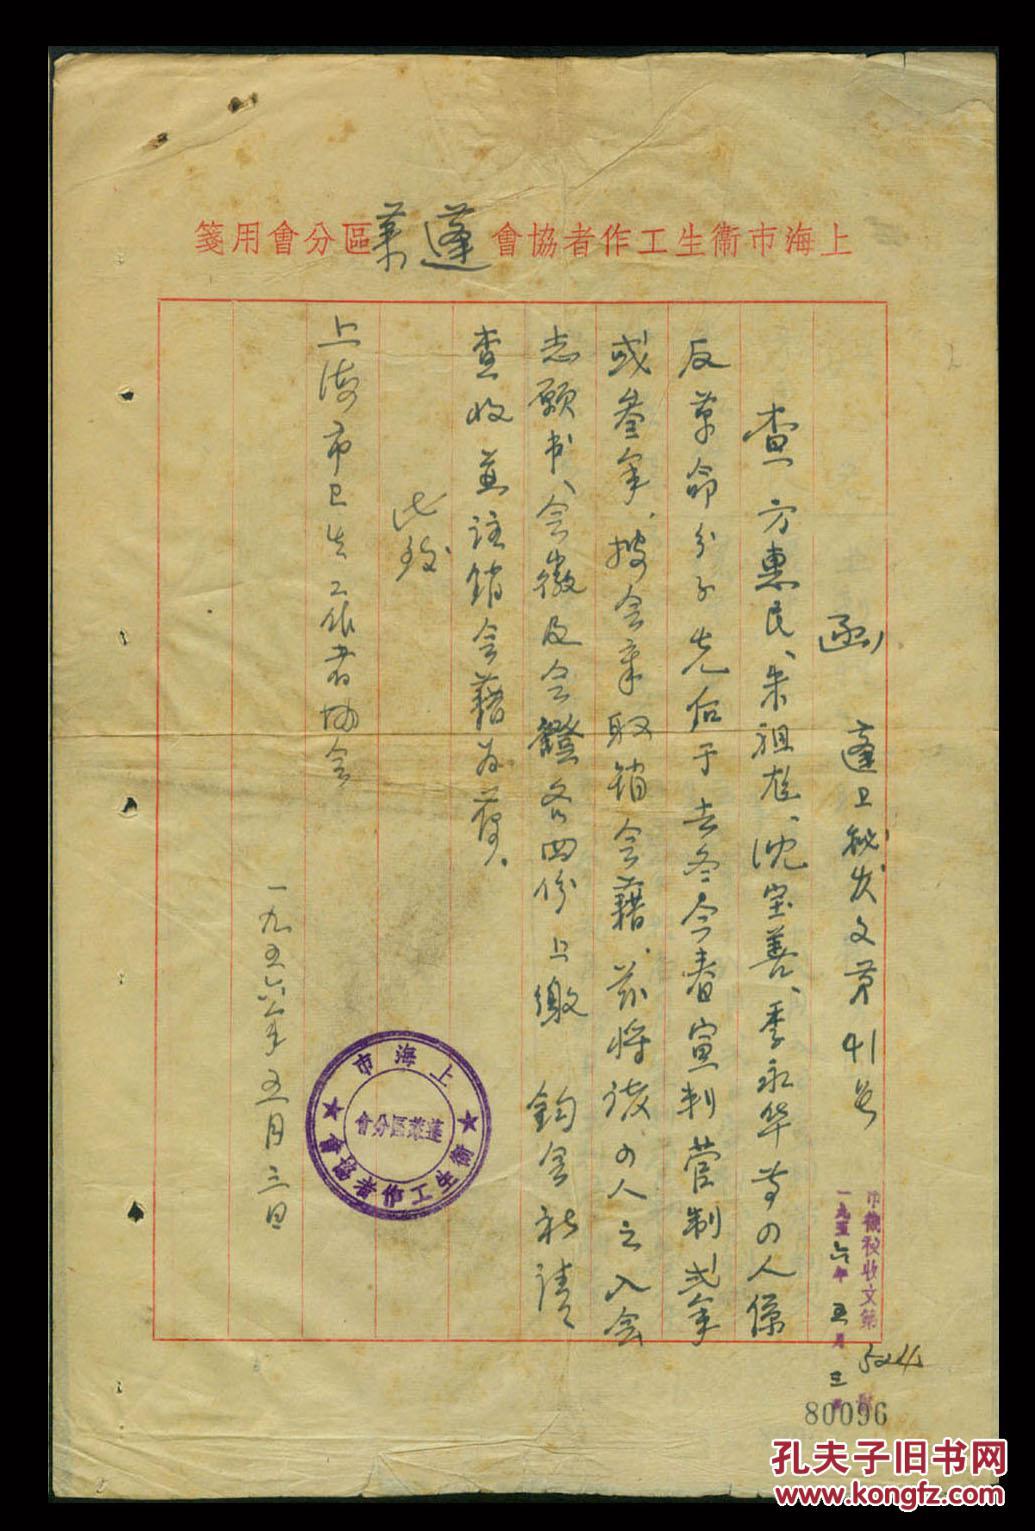 上海市衞生工作者協會蓬莱區分會用箋
函 蓬卫秘发文第41号
查方惠民、朱祖尨、沈宝善、季永华等4人係
反革命分子先后于去冬今春宣判管制弍年
或叁年、按会章取销会藉、兹将该4人之入会
志愿书、会徽及会證各四份上缴 钧会祈请
查收並註销会藉为荷。
此致
上海市卫生工作者协会
一九五六年五月三日
上海市
衞生工作者協會
蓬萊區分會
市衞秘收文第524
一九五六年五月三日
80096
孔夫子旧书网
www.kongfz.com